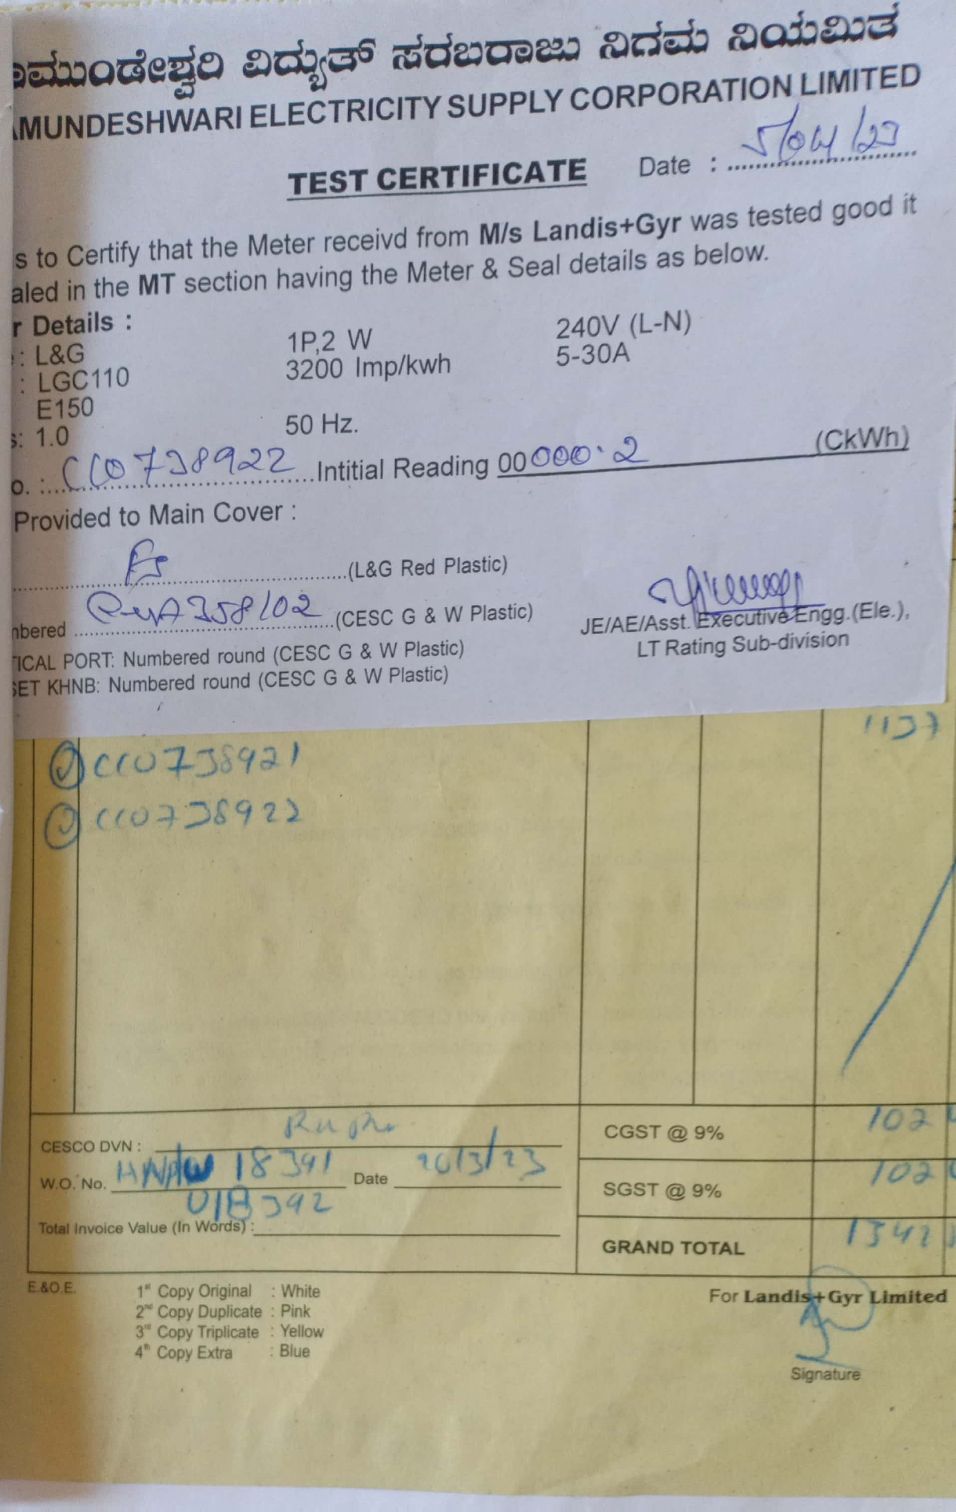 ಾಮುಂಡೇಶ್ವರಿ ವಿದ್ಯುತ್ ಸರಬರಾಜು ನಿಗಮ ನಿಯಮಿತ
AMUNDESHWARI ELECTRICITY SUPPLY CORPORATION LIMITED
TEST CERTIFICATE Date : 5/04/23
s to Certify that the Meter receivd from M/s Landis+Gyr was tested good it
aled in the MT section having the Meter & Seal details as below.
r Details :
: L&G 1P,2 W 240V (L-N)
: LGC110 3200 Imp/kwh 5-30A
E150
s: 1.0 50 Hz.
o. : CC0738922 Intitial Reading 00000.2 (CkWh)
Provided to Main Cover :
(L&G Red Plastic)
nbered 358102 (CESC G & W Plastic)
JE/AE/Asst. Executive Engg.(Ele.),
TICAL PORT: Numbered round (CESC G & W Plastic)
LT Rating Sub-division
SET KHNB: Numbered round (CESC G & W Plastic)
1137
CC0738921
CC0738922
CESCO DVN : CGST @ 9% 102
W.O. No. 18391 Date 20/3/23
18392 SGST @ 9% 102
Total Invoice Value (In Words) :
GRAND TOTAL 1342
E.&O.E.
1st Copy Original : White
2nd Copy Duplicate : Pink
3rd Copy Triplicate : Yellow
4th Copy Extra : Blue
For Landis+Gyr Limited
Signature